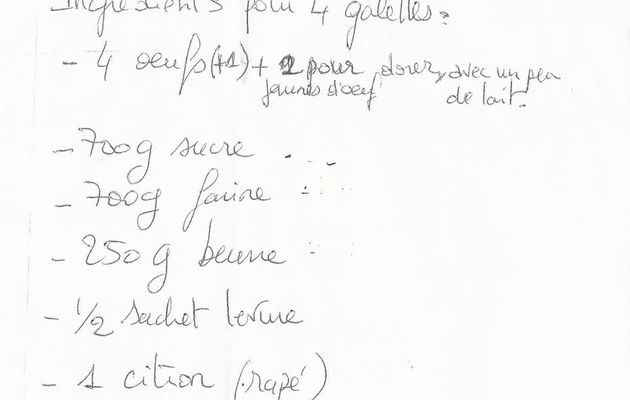 Ingrédients pour 4 galettes:
- 4 oeufs (+1) + 2 pour dorer, avec un peu
jaunes d'oeuf de lait.
- 700g sucre
- 700g farine
- 250g beurre
- 1/2 sachet levure
- 1 citron (rapé)